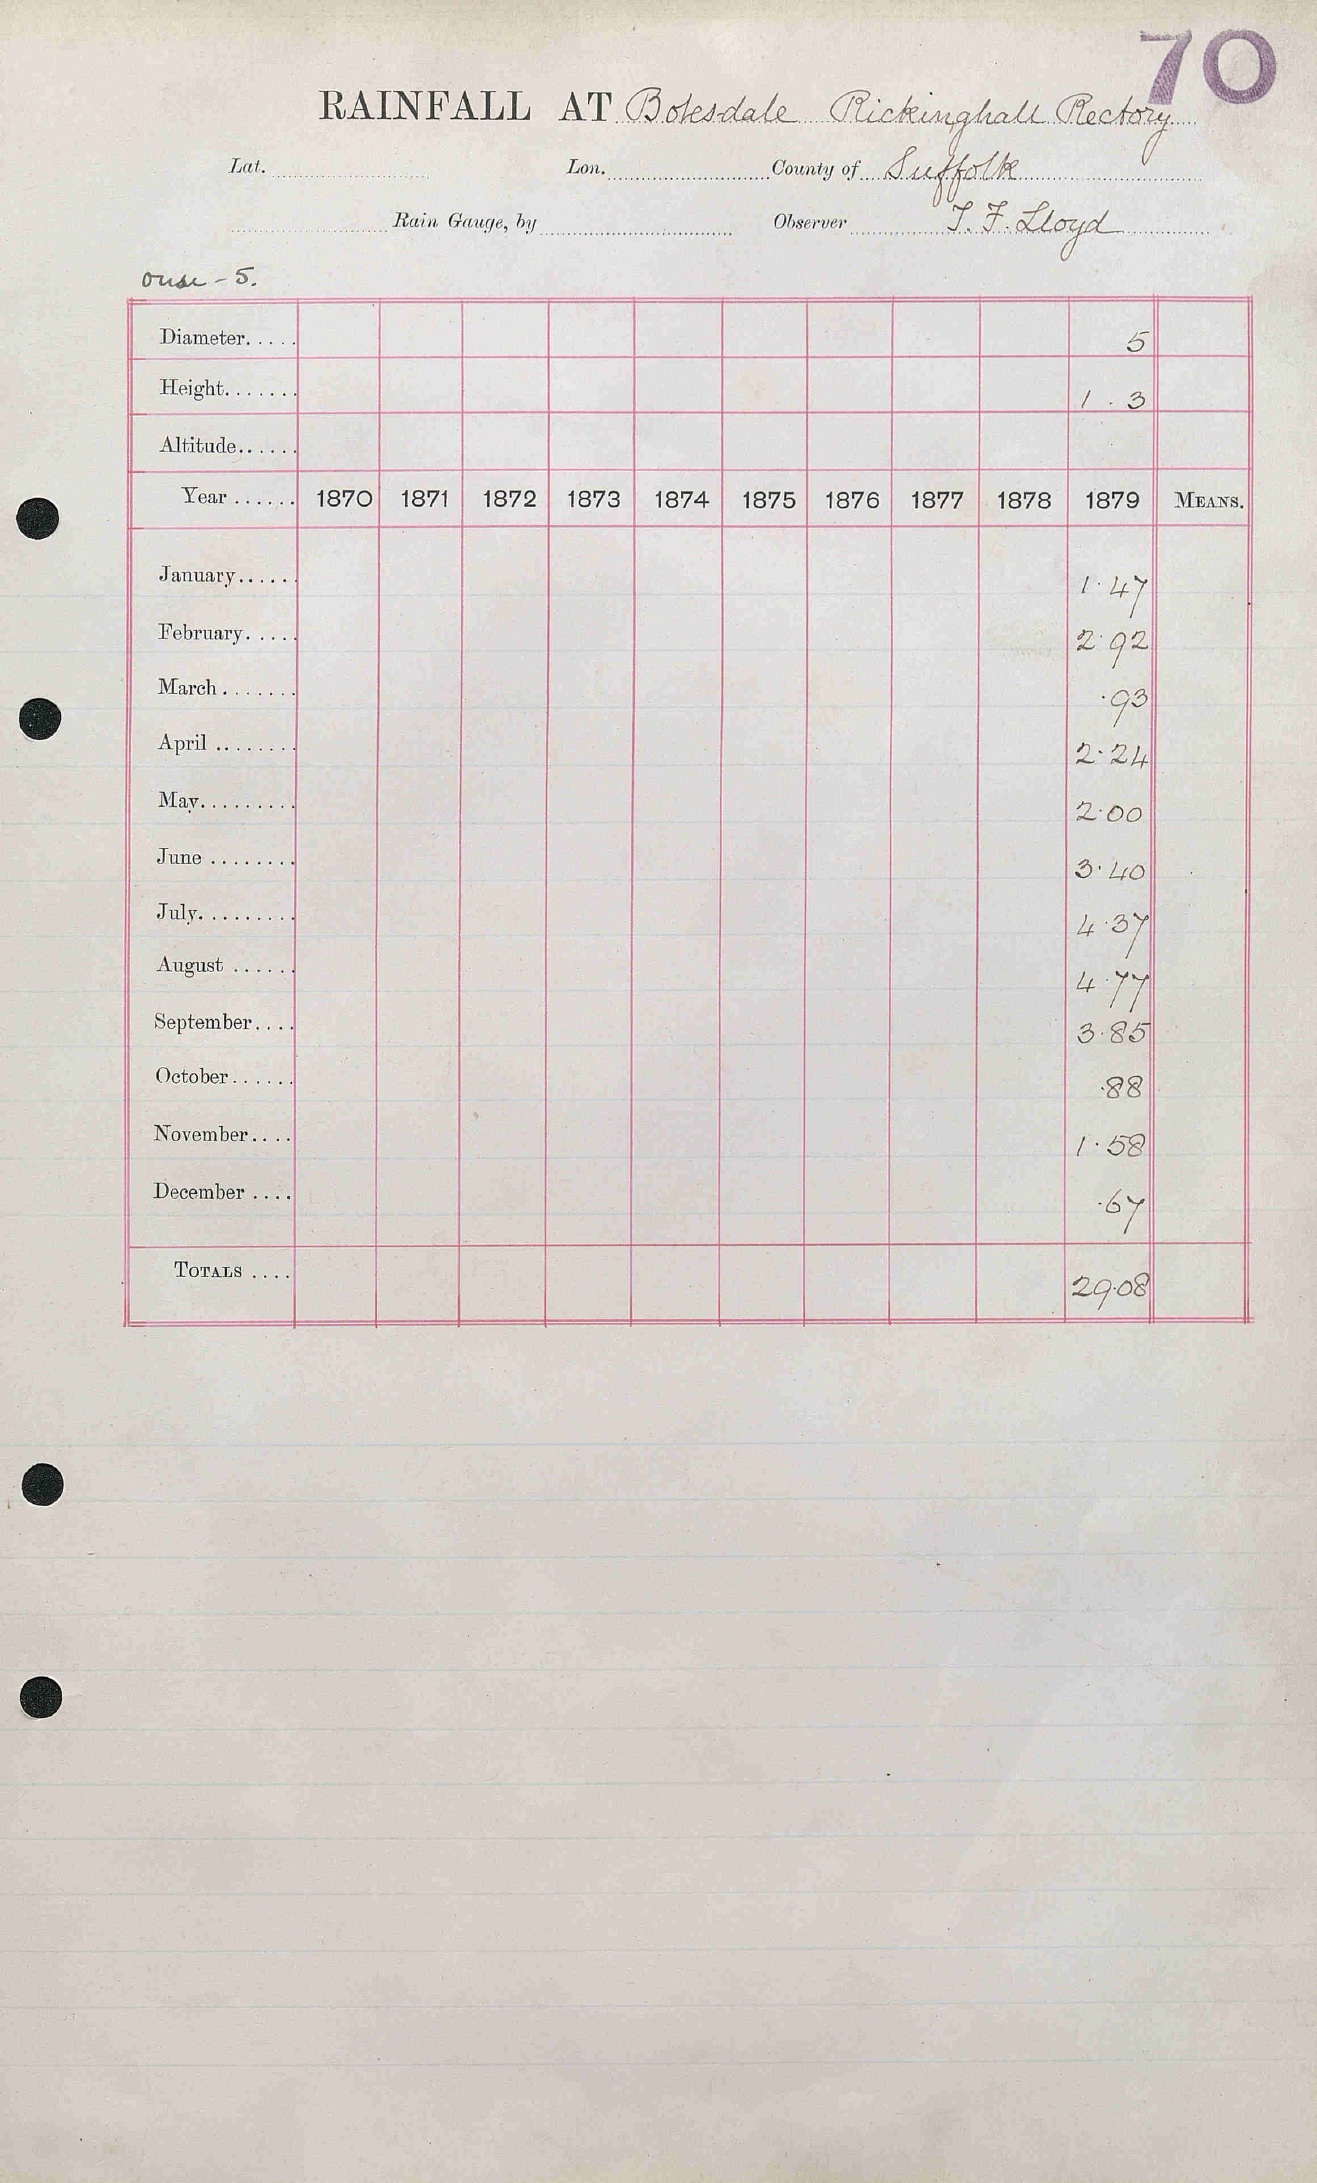 70
RAINFALL AT Botesdale Rickinghall Rectory
Lat. Lon. County of Suffolk
Rain Gauge, by Observer T. F. Lloyd
Ouse - 5.
Diameter..... 5
Height....... 1 . 3
Altitude......
Year ...... 1870 1871 1872 1873 1874 1875 1876 1877 1878 1879 MEANS.
January...... 1.47
February..... 2.92
March....... .93
April ........ 2.24
May......... 2.00
June ........ 3.40
July......... 4.37
August ...... 4.77
September.... 3.85
October...... .88
November.... 1.58
December .... .67
TOTALS .... 29.08